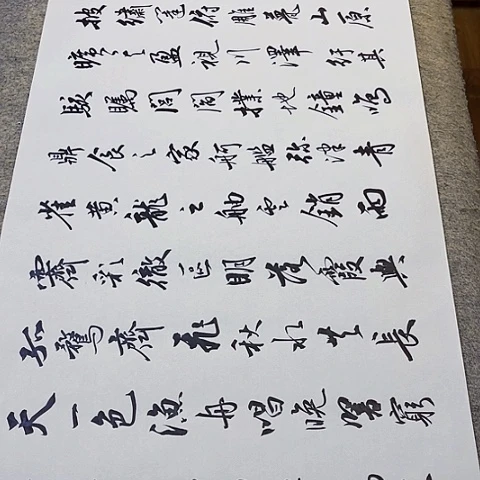 披繡闥俯雕甍山原
曠其盈視川澤紆其
駭矚閭閻撲地鐘鳴
鼎食之家舸艦彌津青
雀黃龍之舳雲銷雨
霽彩徹區明落霞與
孤鶩齊飛秋水共長
天一色漁舟唱晚響窮